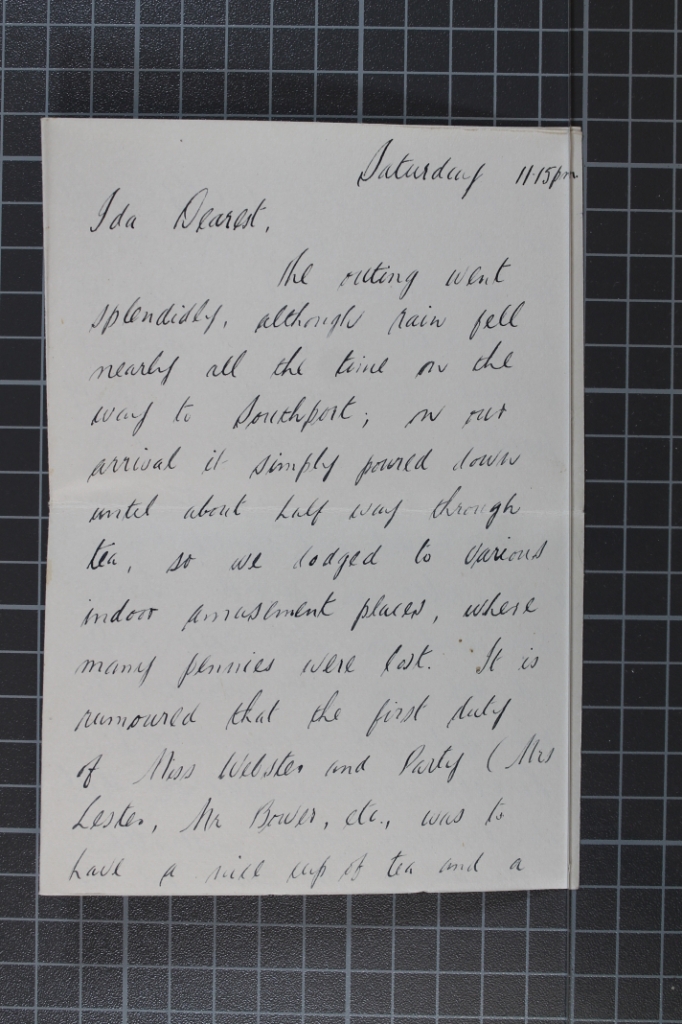 Saturday 11.15pm
Ida Dearest,
the outing went
splendidly, although rain fell
nearly all the time on the
way to Southport; on our
arrival it simply poured down
until about half way through
tea, so we dodged to various
indoor amusement places, where
many pennies were lost. It is
rumoured that the first duty
of Miss Webster and Party (Mrs
Lester, Mr Bower, etc., was to
have a nice cup of tea and a